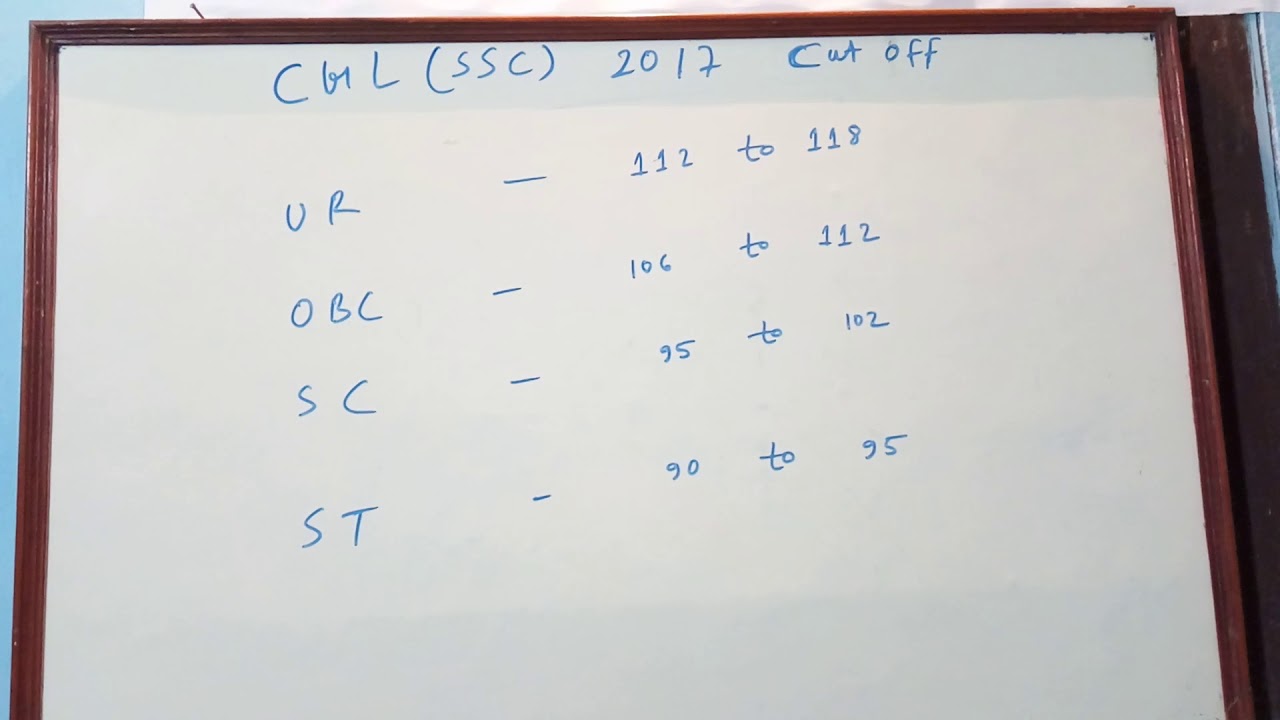 CGL (SSC) 2017 Cut off
UR — 112 to 118
OBC — 106 to 112
SC — 95 to 102
ST - 90 to 95